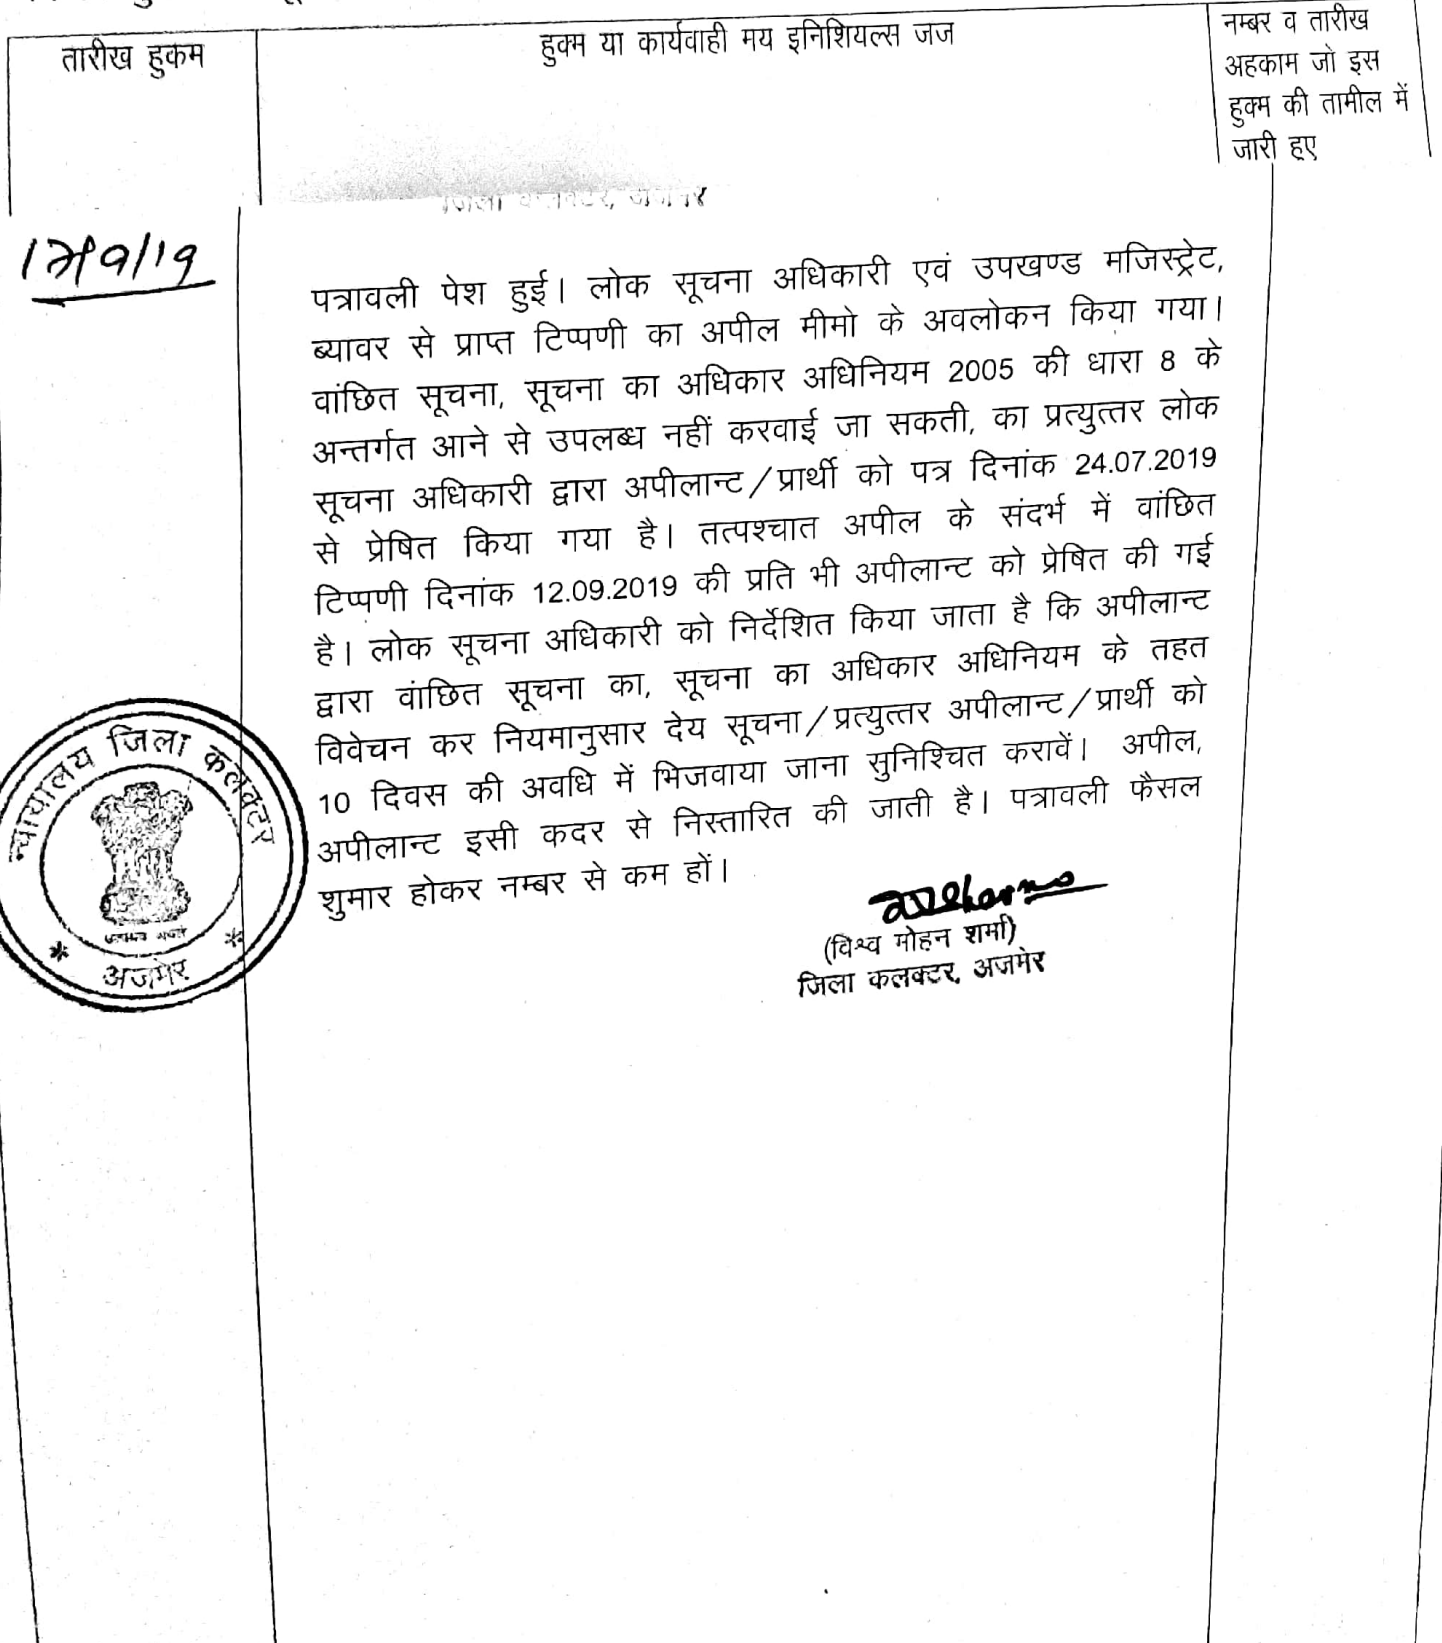 तारीख हुकम
हुक्म या कार्यवाही मय इनिशियल्स जज
नम्बर व तारीख
अहकाम जो इस
हुक्म की तामील में
जारी हुए
जिला कलक्टर, अजमेर
पत्रावली पेश हुई। लोक सूचना अधिकारी एवं उपखण्ड मजिस्ट्रेट,
ब्यावर से प्राप्त टिप्पणी का अपील मीमो के अवलोकन किया गया।
वांछित सूचना, सूचना का अधिकार अधिनियम 2005 की धारा 8 के
अन्तर्गत आने से उपलब्ध नहीं करवाई जा सकती, का प्रत्युत्तर लोक
सूचना अधिकारी द्वारा अपीलान्ट/प्रार्थी को पत्र दिनांक 24.07.2019
से प्रेषित किया गया है। तत्पश्चात अपील के संदर्भ में वांछित
टिप्पणी दिनांक 12.09.2019 की प्रति भी अपीलान्ट को प्रेषित की गई
है। लोक सूचना अधिकारी को निर्देशित किया जाता है कि अपीलान्ट
द्वारा वांछित सूचना का, सूचना का अधिकार अधिनियम के तहत
विवेचन कर नियमानुसार देय सूचना/प्रत्युत्तर अपीलान्ट/प्रार्थी को
10 दिवस की अवधि में भिजवाया जाना सुनिश्चित करावें। अपील,
अपीलान्ट इसी कदर से निस्तारित की जाती है। पत्रावली फैसल
शुमार होकर नम्बर से कम हों।
न्यायालय जिला कलक्टर
अजमेर
(विश्व मोहन शर्मा)
जिला कलक्टर, अजमेर